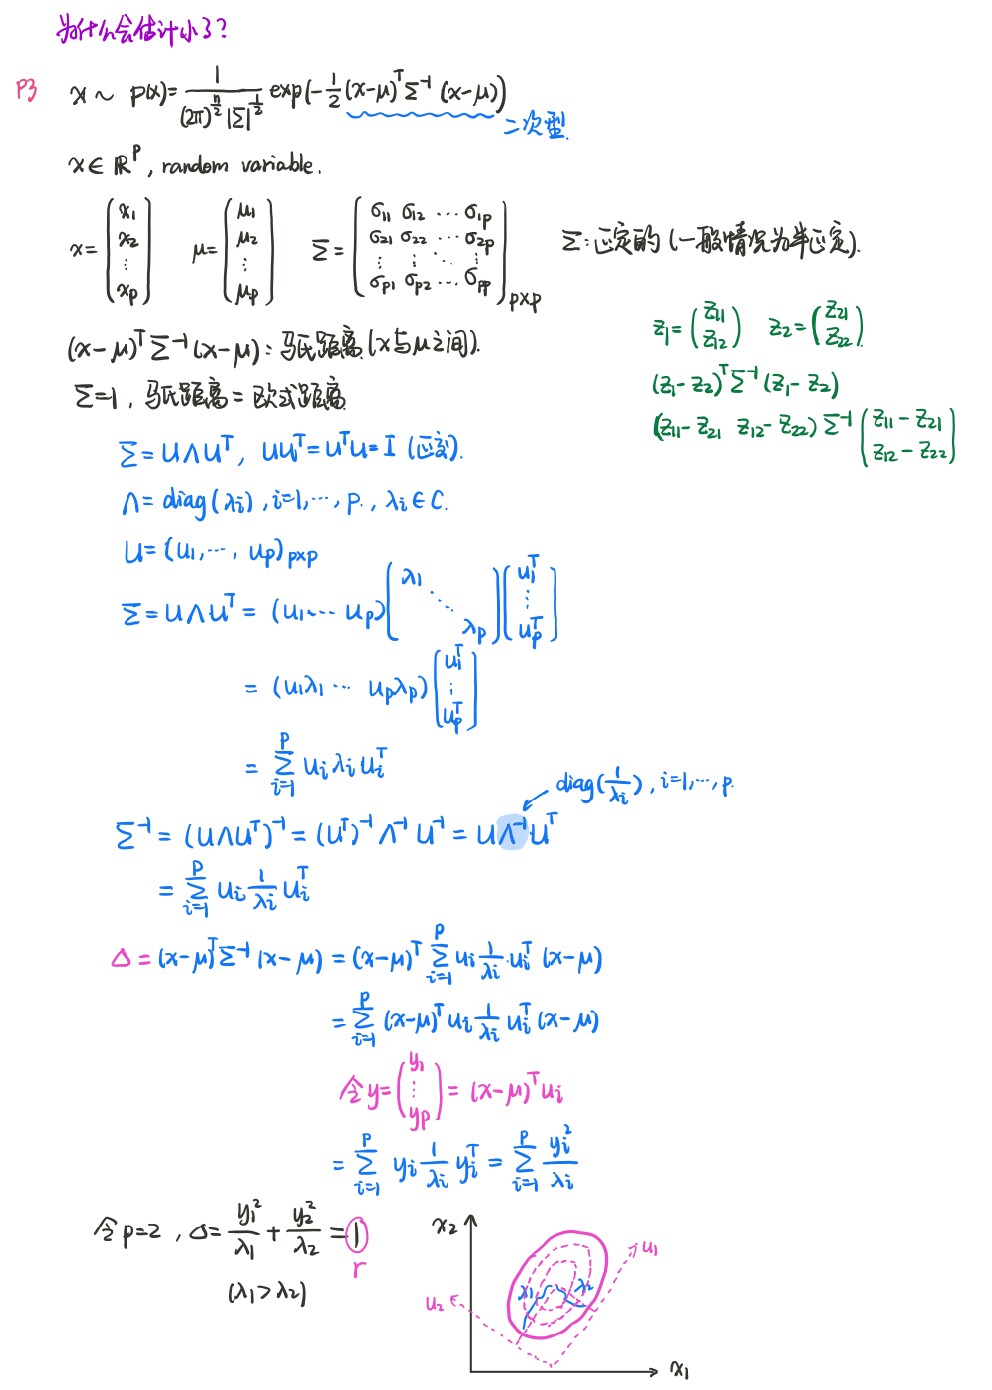 为什么会估计小了?
P3 x ~ p(x) = \frac{1}{(2π)^{\frac{n}{2}} |Σ|^{\frac{1}{2}}} exp(-\frac{1}{2} (x-μ)^T Σ^{-1} (x-μ))
二次型.
x ∈ ℝ^p, random variable.
x = \begin{pmatrix} x_1 \\ x_2 \\ ⋮ \\ x_p \end{pmatrix} μ = \begin{pmatrix} μ_1 \\ μ_2 \\ ⋮ \\ μ_p \end{pmatrix} Σ = \begin{pmatrix} σ_{11} & σ_{12} & ⋯ & σ_{1p} \\ σ_{21} & σ_{22} & ⋯ & σ_{2p} \\ ⋮ & ⋮ & ⋱ & ⋮ \\ σ_{p1} & σ_{p2} & ⋯ & σ_{pp} \end{pmatrix}_{p×p} Σ: 正定的 (一般情况为半正定).
(x-μ)^T Σ^{-1} (x-μ): 马氏距离 (x与μ之间).
Σ=1, 马氏距离 = 欧式距离.
z_1 = \begin{pmatrix} z_{11} \\ z_{12} \end{pmatrix} z_2 = \begin{pmatrix} z_{21} \\ z_{22} \end{pmatrix}.
(z_1 - z_2)^T Σ^{-1} (z_1 - z_2)
(z_{11} - z_{21} z_{12} - z_{22}) Σ^{-1} \begin{pmatrix} z_{11} - z_{21} \\ z_{12} - z_{22} \end{pmatrix}
Σ = U Λ U^T, UU^T = U^T U = I (正交).
Λ = diag(λ_i), i=1, ⋯, p., λ_i ∈ C.
U = (u_1, ⋯, u_p)_{p×p}
Σ = U Λ U^T = (u_1 ⋯ u_p) \begin{pmatrix} λ_1 & & \\ & ⋱ & \\ & & λ_p \end{pmatrix} \begin{pmatrix} u_1^T \\ ⋮ \\ u_p^T \end{pmatrix}
= (u_1λ_1 ⋯ u_pλ_p) \begin{pmatrix} u_1^T \\ ⋮ \\ u_p^T \end{pmatrix}
= \sum_{i=1}^{p} u_i λ_i u_i^T
diag(\frac{1}{λ_i}), i=1, ⋯, p.
Σ^{-1} = (U Λ U^T)^{-1} = (U^T)^{-1} Λ^{-1} U^{-1} = U Λ^{-1} U^T
= \sum_{i=1}^{p} u_i \frac{1}{λ_i} u_i^T
Δ = (x-μ)^T Σ^{-1} (x-μ) = (x-μ)^T \sum_{i=1}^{p} u_i \frac{1}{λ_i} · u_i^T (x-μ)
= \sum_{i=1}^{p} (x-μ)^T u_i \frac{1}{λ_i} u_i^T (x-μ)
令 y = \begin{pmatrix} y_1 \\ ⋮ \\ y_p \end{pmatrix} = (x-μ)^T u_i
= \sum_{i=1}^{p} y_i \frac{1}{λ_i} y_i^T = \sum_{i=1}^{p} \frac{y_i^2}{λ_i}
令 p=2, Δ = \frac{y_1^2}{λ_1} + \frac{y_2^2}{λ_2} = 1
r
(λ_1 > λ_2)
x_2
u_1
λ_1 λ_2
u_2
x_1